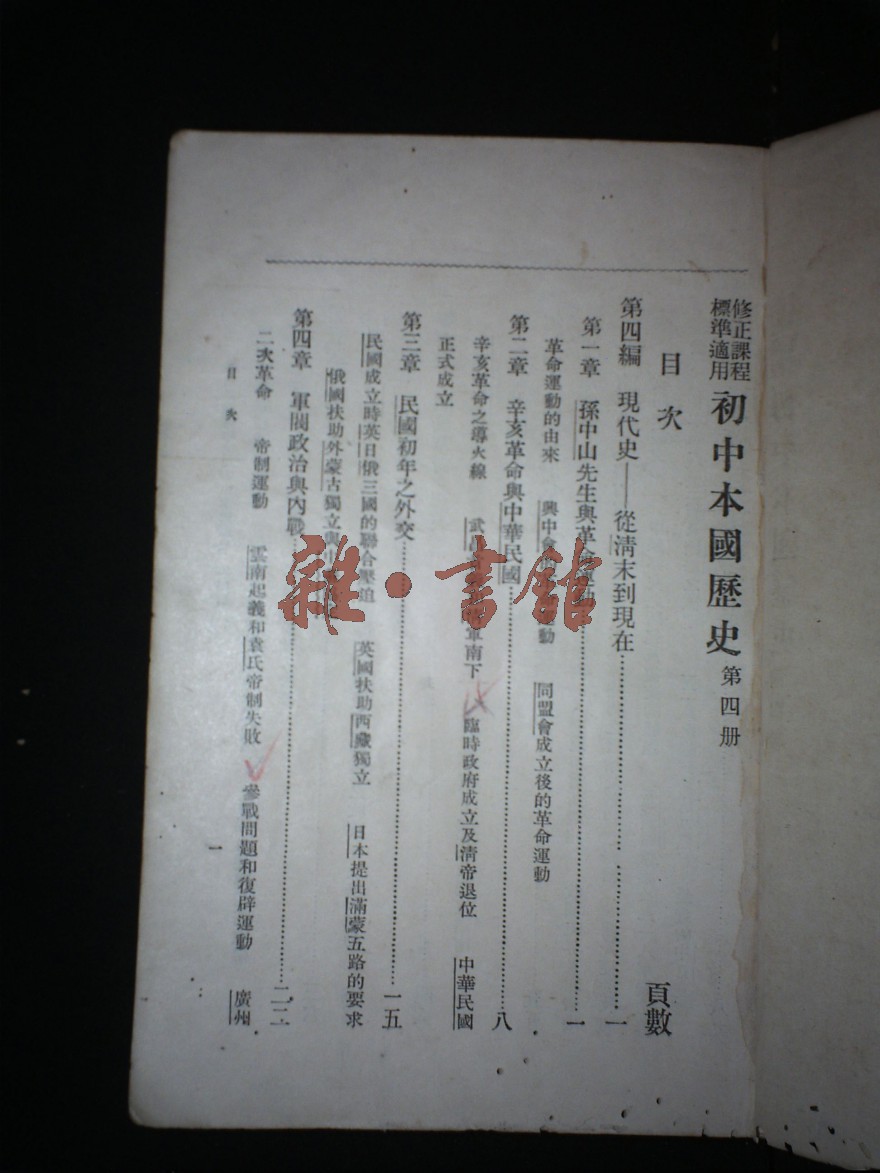 修正課程
標準適用
初中本國歷史 第四册
目次
頁數
第四編 現代史——從清末到現在……一
第一章 孫中山先生與革命運動……一
革命運動的由來 興中會 動 同盟會成立後的革命運動
第二章 辛亥革命與中華民國……八
辛亥革命之導火線 武昌 軍南下 臨時政府成立及清帝退位 中華民國
正式成立
第三章 民國初年之外交……一五
民國成立時英日俄三國的聯合壓迫 英國扶助西藏獨立 日本提出滿蒙五路的要求
俄國扶助外蒙古獨立與
第四章 軍閥政治與內戰……二二
二次革命 帝制運動 雲南起義和袁氏帝制失敗 參戰問題和復辟運動 廣州
目次
一
雜·書館